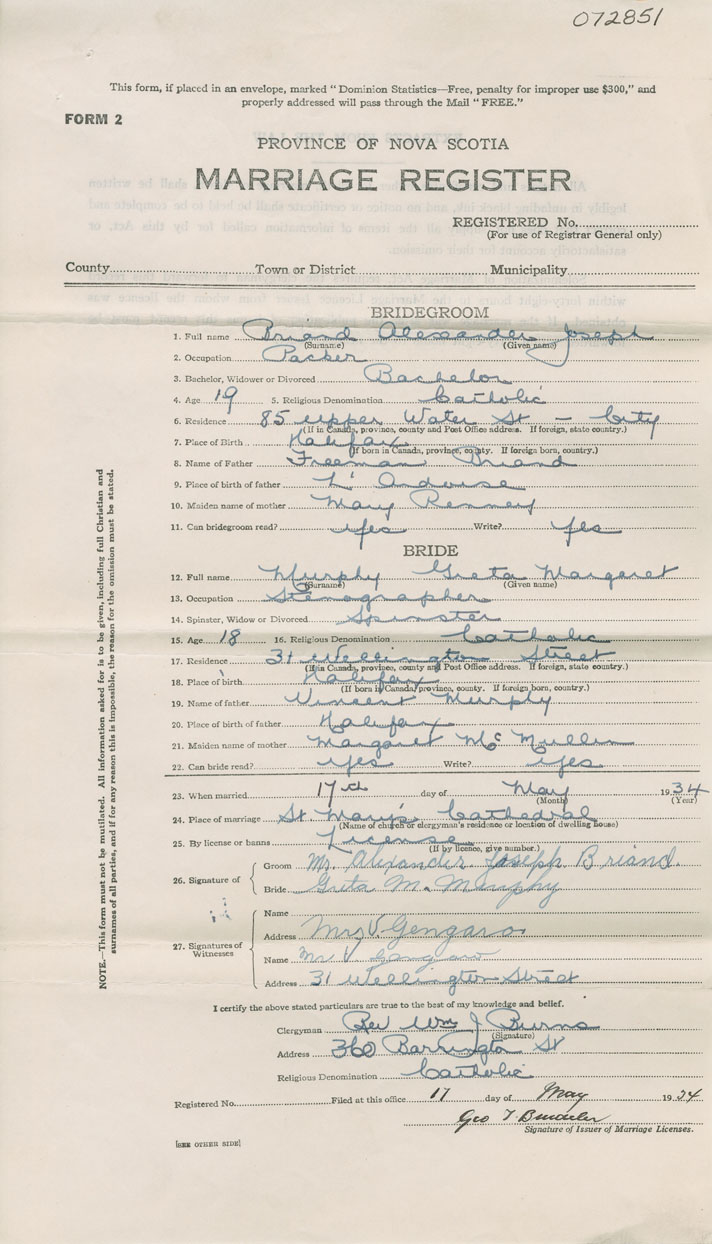 072851
This form, if placed in an envelope, marked "Dominion Statistics—Free, penalty for improper use $300," and
properly addressed will pass through the Mail "FREE."
FORM 2
PROVINCE OF NOVA SCOTIA
MARRIAGE REGISTER
REGISTERED No.
(For use of Registrar General only)
County Town or District Municipality
BRIDEGROOM
1. Full name Briand Alexander Joseph
(Surname) (Given name)
2. Occupation Packer
3. Bachelor, Widower or Divorced Bachelor
4. Age 19 5. Religious Denomination Catholic
6. Residence 85 Upper Water St – City
(If in Canada, province, county and Post Office address. If foreign, state country.)
7. Place of Birth Halifax
(If born in Canada, province, county. If foreign born, country.)
8. Name of Father Freeman Briand
9. Place of birth of father L' Ardoise
10. Maiden name of mother Mary
11. Can bridegroom read? Yes Write? Yes
BRIDE
12. Full name Murphy Greta Margaret
(Surname) (Given name)
13. Occupation Stenographer
14. Spinster, Widow or Divorced Spinster
15. Age 18 16. Religious Denomination Catholic
17. Residence 31 Wellington Street
(If in Canada, province, county and Post Office address. If foreign, state country.)
18. Place of birth Halifax
(If born in Canada, province, county. If foreign born, country.)
19. Name of father Vincent Murphy
20. Place of birth of father Halifax
21. Maiden name of mother Margaret McMullin
22. Can bride read? Yes Write? Yes
23. When married 17th day of May 1934
(Month) (Year)
24. Place of marriage St Mary's Cathedral
(Name of church or clergyman's residence or location of dwelling house)
25. By license or banns License
(If by licence, give number.)
26. Signature of
Groom Mr. Alexander Joseph Briand.
Bride Greta M. Murphy
27. Signatures of Witnesses
Name
Address Mrs V. Gengaro
Name Mr V Gengaro
Address 31 Wellington Street
I certify the above stated particulars are true to the best of my knowledge and belief.
Clergyman Rev Wm J Burns
(Signature)
Address 360 Barrington St
Religious Denomination Catholic
Registered No. Filed at this office 17 day of May 1934
Geo T
Signature of Issuer of Marriage Licenses.
[SEE OTHER SIDE]
NOTE.—This form must not be mutilated. All information asked for is to be given, including full Christian and
surnames of all parties, and if for any reason this is impossible, the reason for the omission must be stated.